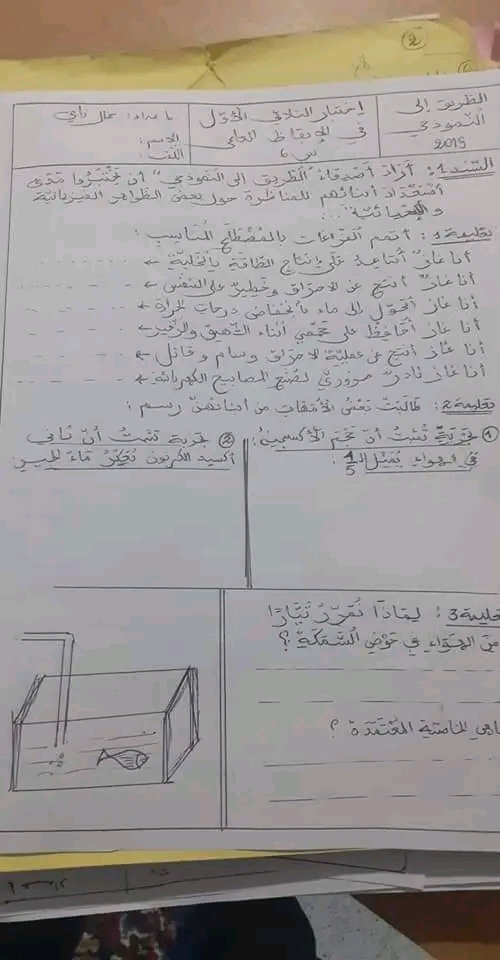 2
الطريق إلى
النموذجي
2019
إختبار الثلاثي الأول
في الإيقاظ العلمي
س 6
الإسم:
اللقب:
السند 1: أراد أصدقاء "الطريق إلى النموذجي" أن يختبروا مدى
استعداد أبنائهم للمناظرة حول بعض الظواهر الفيزيائية
تعليمة 1: أتمم الفراغات بالمصطلح المناسب:
أنا غاز أساعد على إنتاج الطاقة بالخلية ←
أنا غاز أنتج عن الاحتراق وخطير على التنفس
أنا غاز أتحول إلى ماء بانخفاض درجات الحرارة ←
أنا غاز أحافظ على حجمي أثناء الشهيق والزفير ←
أنا غاز أنتج عن عملية الاحتراق وسام وقاتل ←
أنا غاز نادر ضروري لصنع المصابيح الكهربائية ←
تعليمة 2: طالبت بعض الأمهات من أبنائهن رسم:
1 تجربة تثبت أن حجم الأكسجين
في الهواء يمثل 1/5:
2 تجربة تثبت أن ثاني
أكسيد الكربون يعكر ماء الجير
تعليمة 3: لماذا نمرر تيارا
من الهواء في حوض السمكة؟
ماهي الخاصية المعتمدة؟